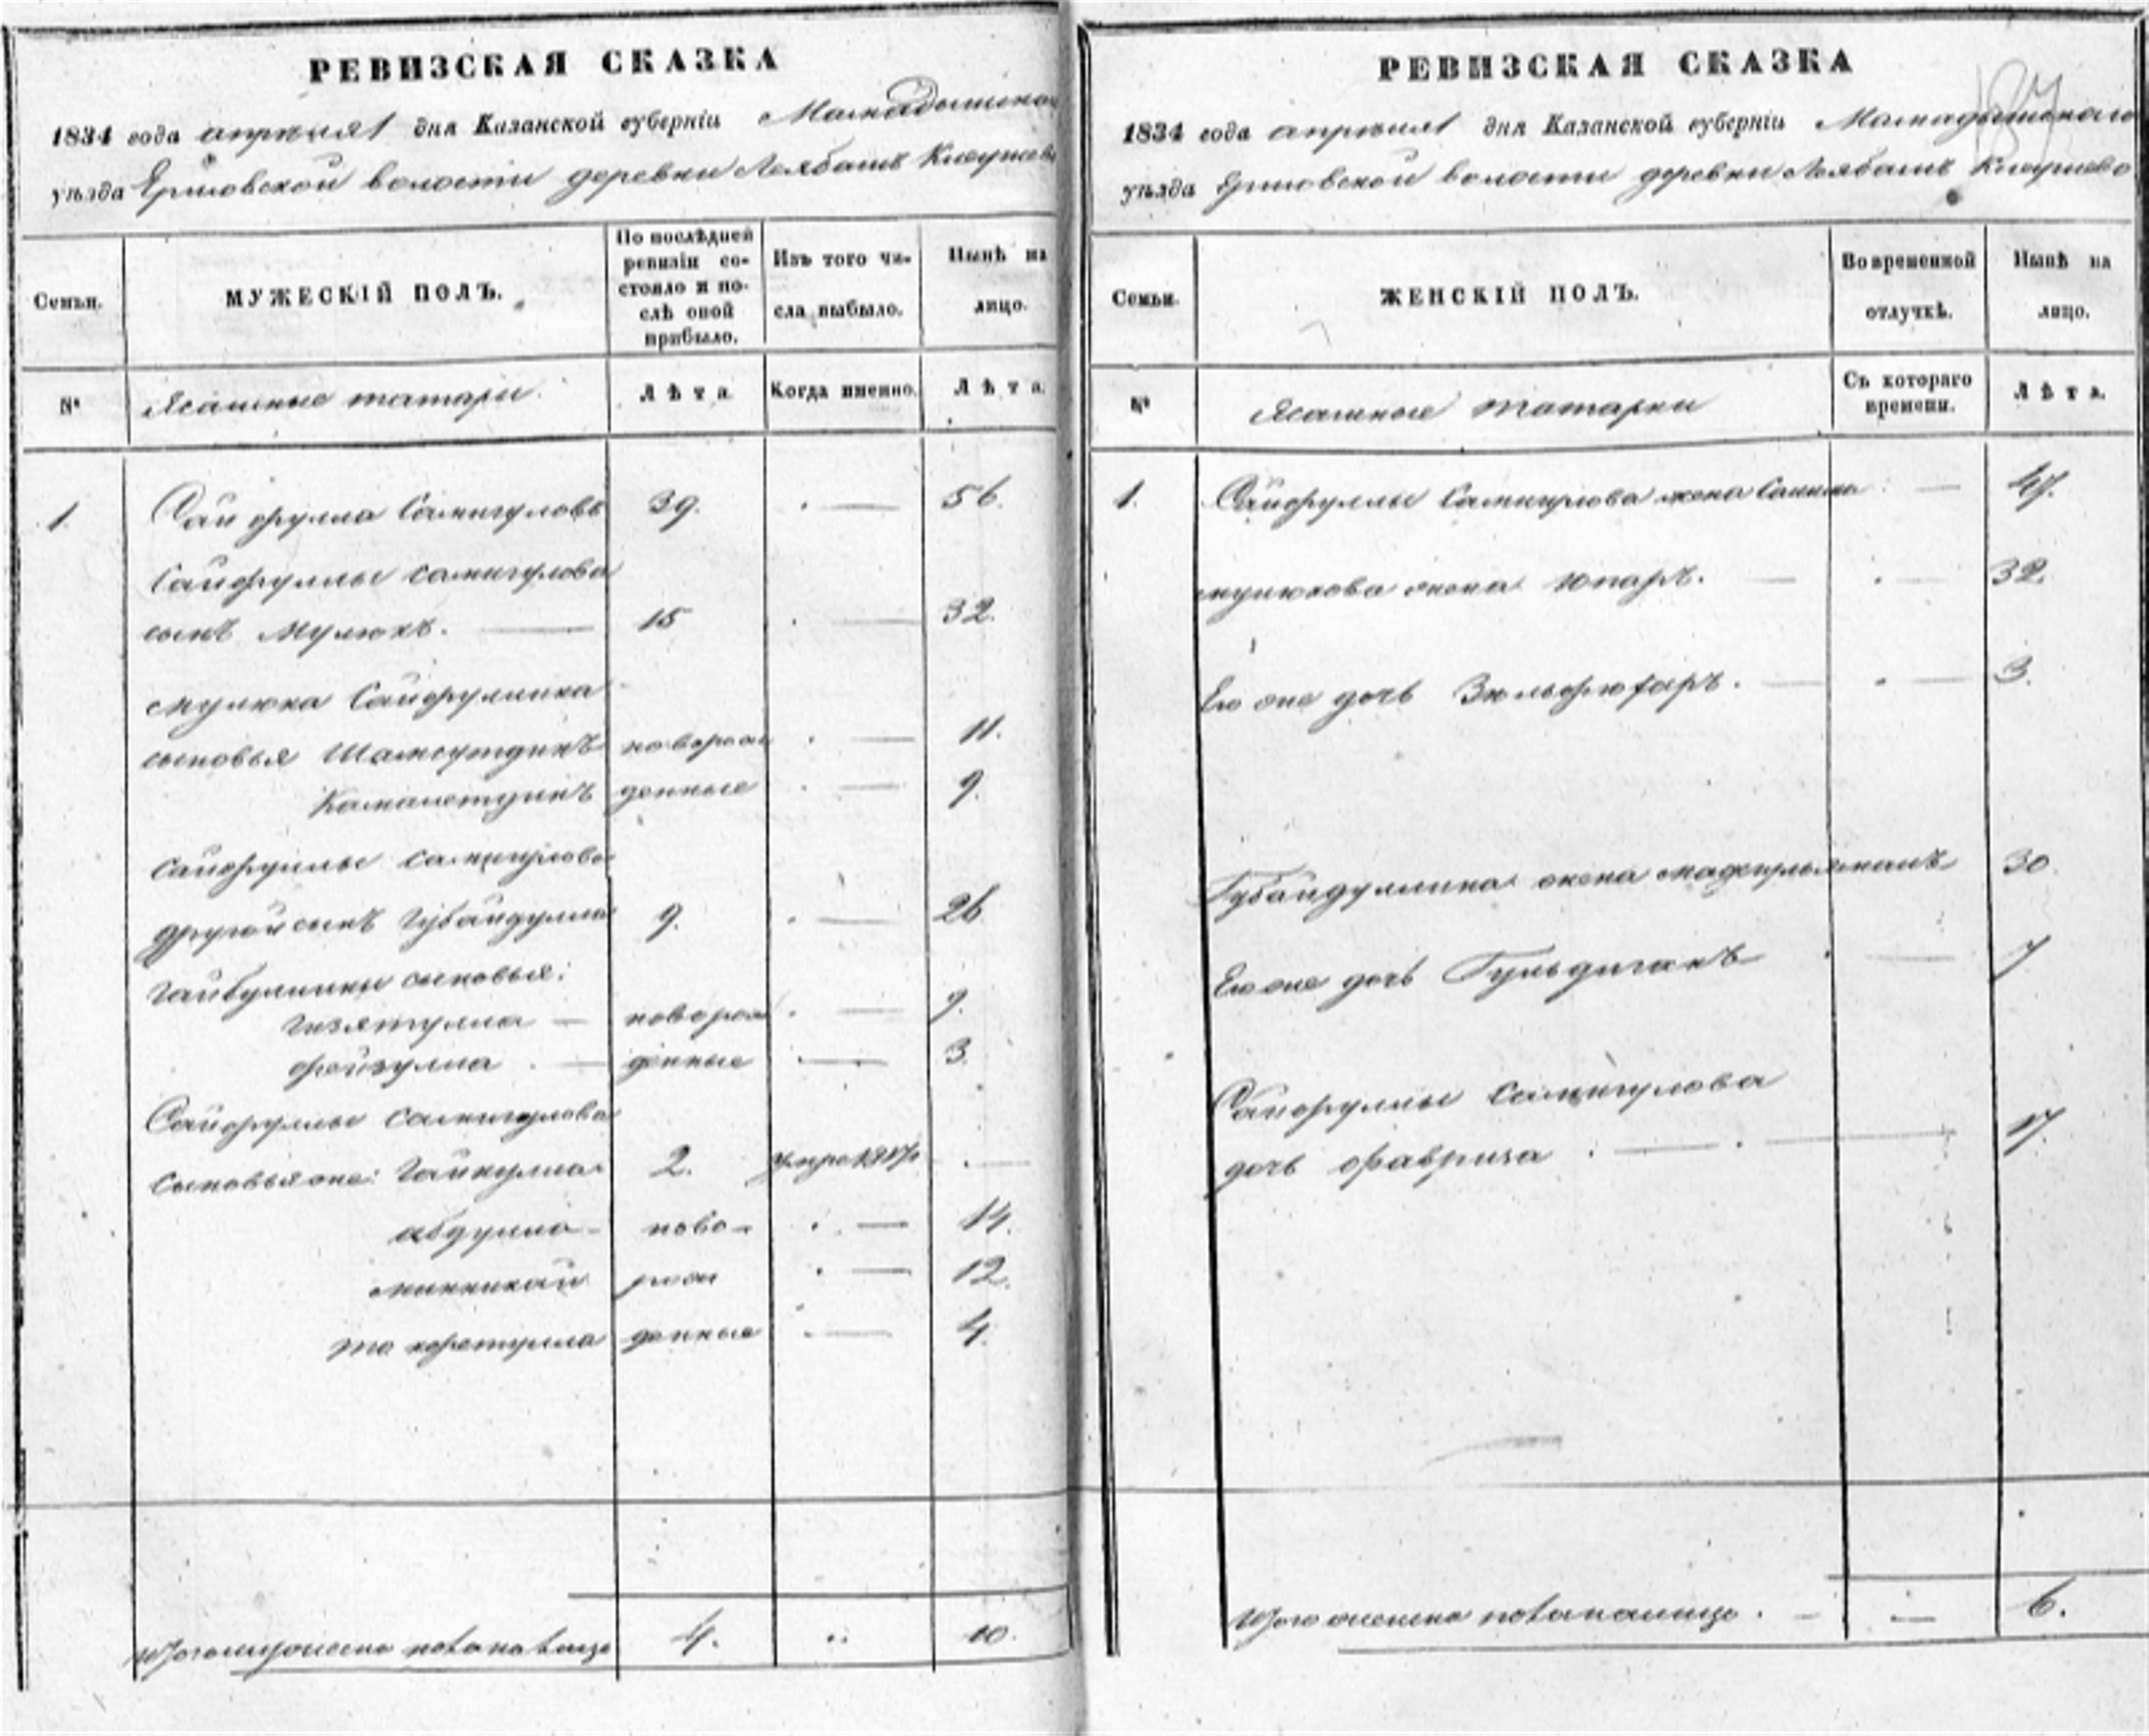 РЕВИЗСКАЯ СКАЗКА
1834 года апреля 1 дня Казанской губерніи Мамадышскаго
уѣзда Ершовской волости деревни
Семьи.
МУЖЕСКІЙ ПОЛЪ.
По послѣдней
ревизіи со-
стояло и по-
слѣ оной
прибыло.
Изъ того чи-
сла выбыло.
Нынѣ на
лицо.
№
Ясашные татары.
Лѣта
Когда именно.
Лѣта.
1. Сайфулла Самигуловъ 39. 56.
Сайфуллы Самигулова
сынъ Мулюкъ. 15 32.
Мулюка Сайфуллина
сыновья Шамсутдинъ новорож 11.
Камалетдинъ денные 9.
Сайфуллы Самигулова
другой сынъ Губайдулла 9. 26.
сыновья:
Гизятулла новорож 9.
Фейзулла денные 3.
Сайфуллы Самигулова
сыновья же: 2.
Абдулла ново- 14.
Минникай рож 12.
денные 4.
Итого мужеска пола на лицо 4. 10.
РЕВИЗСКАЯ СКАЗКА
1834 года апреля 1 дня Казанской губерніи Мамадышскаго
уѣзда Ершовской волости деревни
Семьи.
ЖЕНСКІЙ ПОЛЪ.
Во временной
отлучкѣ.
Нынѣ на
лицо.
№
Ясашные татарки
Съ котораго
времени.
Лѣта.
1. Сайфуллы Самигулова жена 47.
Мулюкова жена Юпаръ. 32.
Его же дочь 3.
Губайдуллина жена 30
Его же дочь 7
Сайфуллы Самигулова
дочь Фавриза 17.
Итого женска пола на лицо. 6.